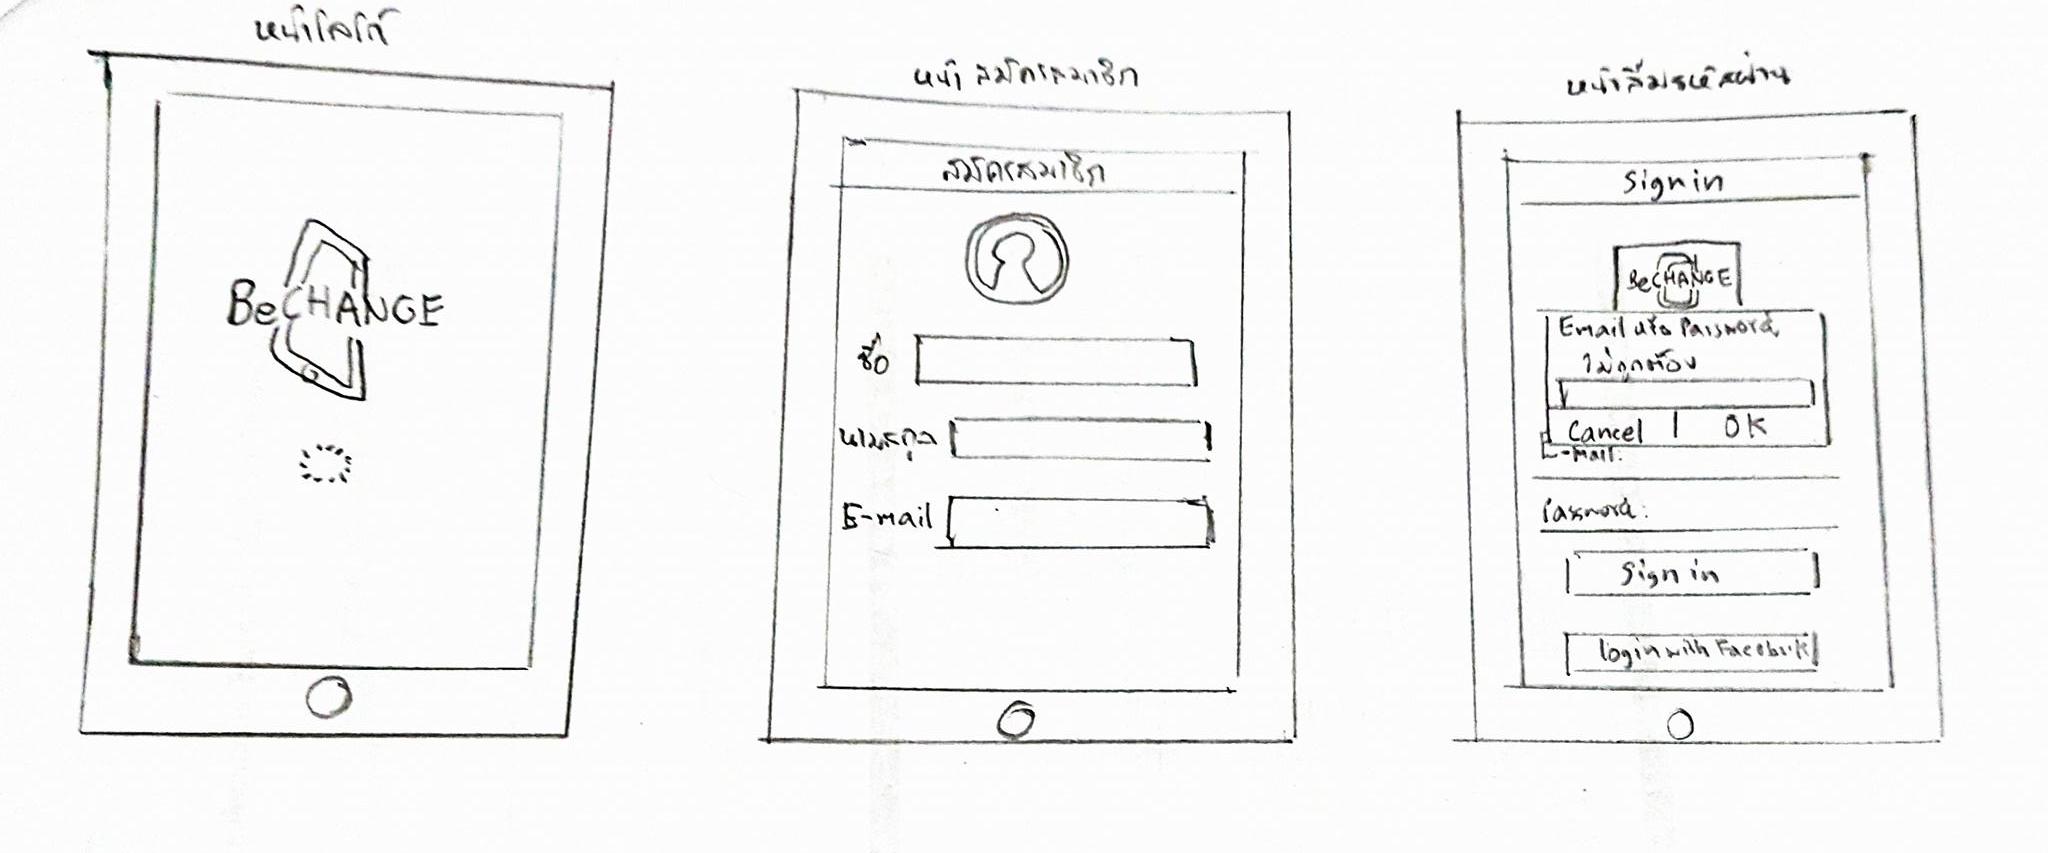 หน้าโลโก้
BeCHANGE
หน้า สมัครสมาชิก
สมัครสมาชิก
ชื่อ
นามสกุล
E-mail
หน้าลืมรหัสผ่าน
Sign in
BeCHANGE
Email หรือ Password
ไม่ถูกต้อง
Cancel | OK
E-mail:
Password:
Sign in
login with Facebook